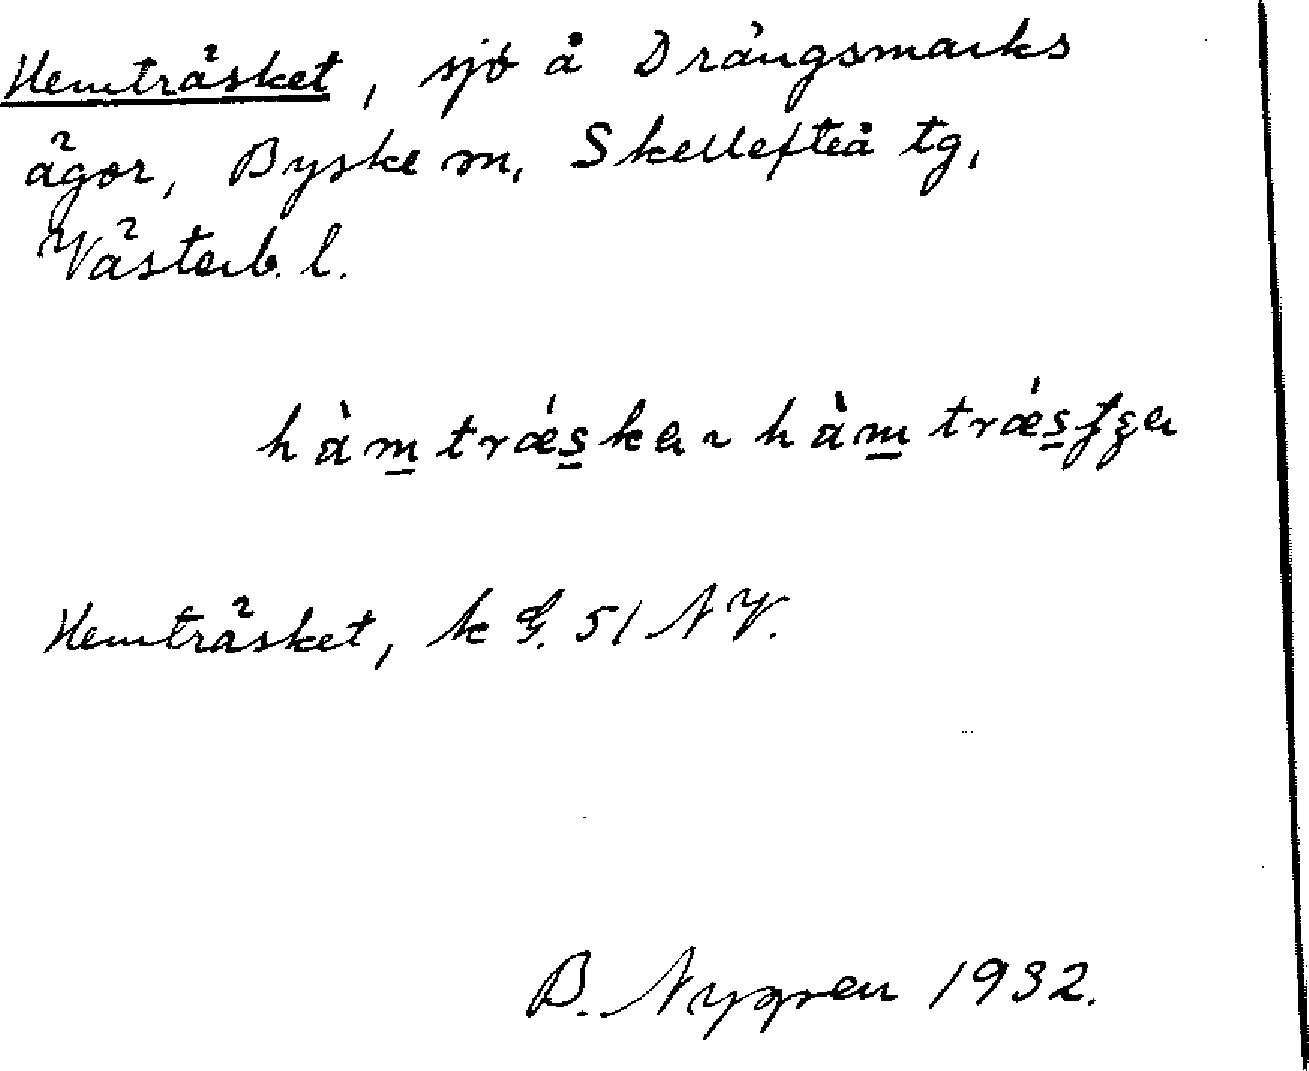 Hemträsket, sjö å Drängsmarks
ägor, Byske sn, Skellefteå tg,
Västerb. l.
hàm̲ trǽs̲ka ~ hàm̲ trǽs̲
Hemträsket, k G. 51 NV.
B. Nygren 1932.